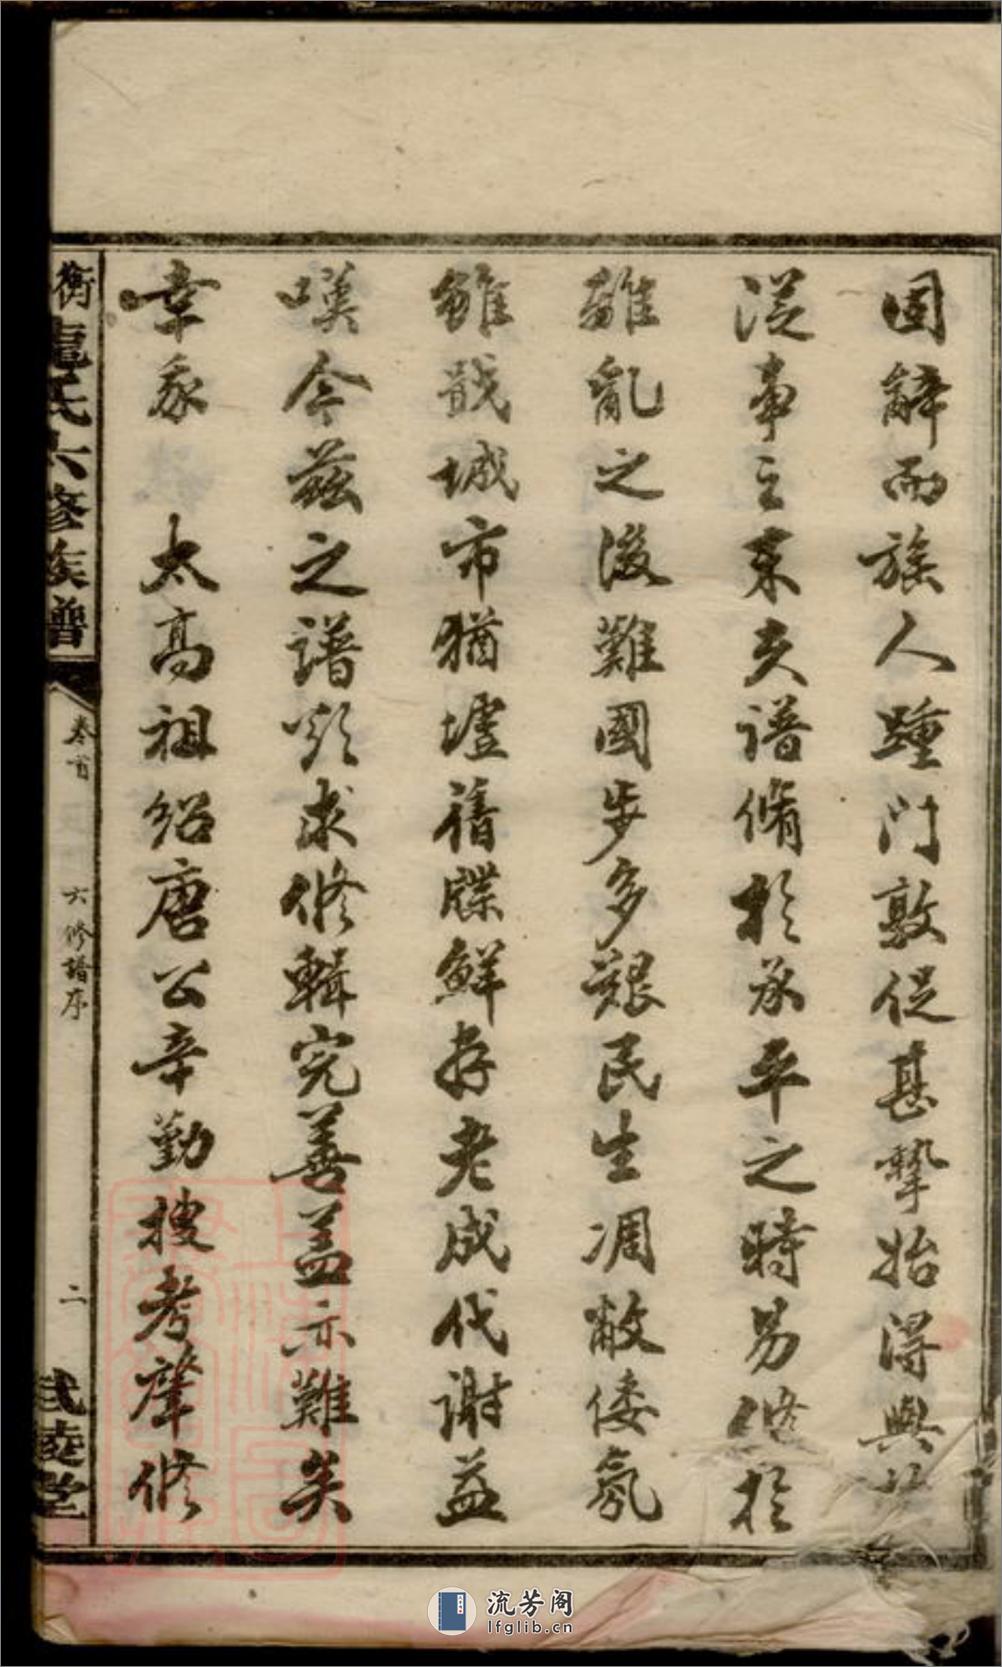 固辭而族人踵門敦促甚摯始得與
從事之末夫譜脩於承平之時易修於
離亂之後難國步多艱民生凋敝倭氛
雖戢城市猶墟舊牒鮮存老成代謝益
嘆今茲之譜欲求修輯完善蓋亦難矣
幸我 太高祖紹唐公辛勤搜考肇修
衡 氏六修族譜
卷首 六修譜序 二
武陵堂
流芳阁
lfglib.cn